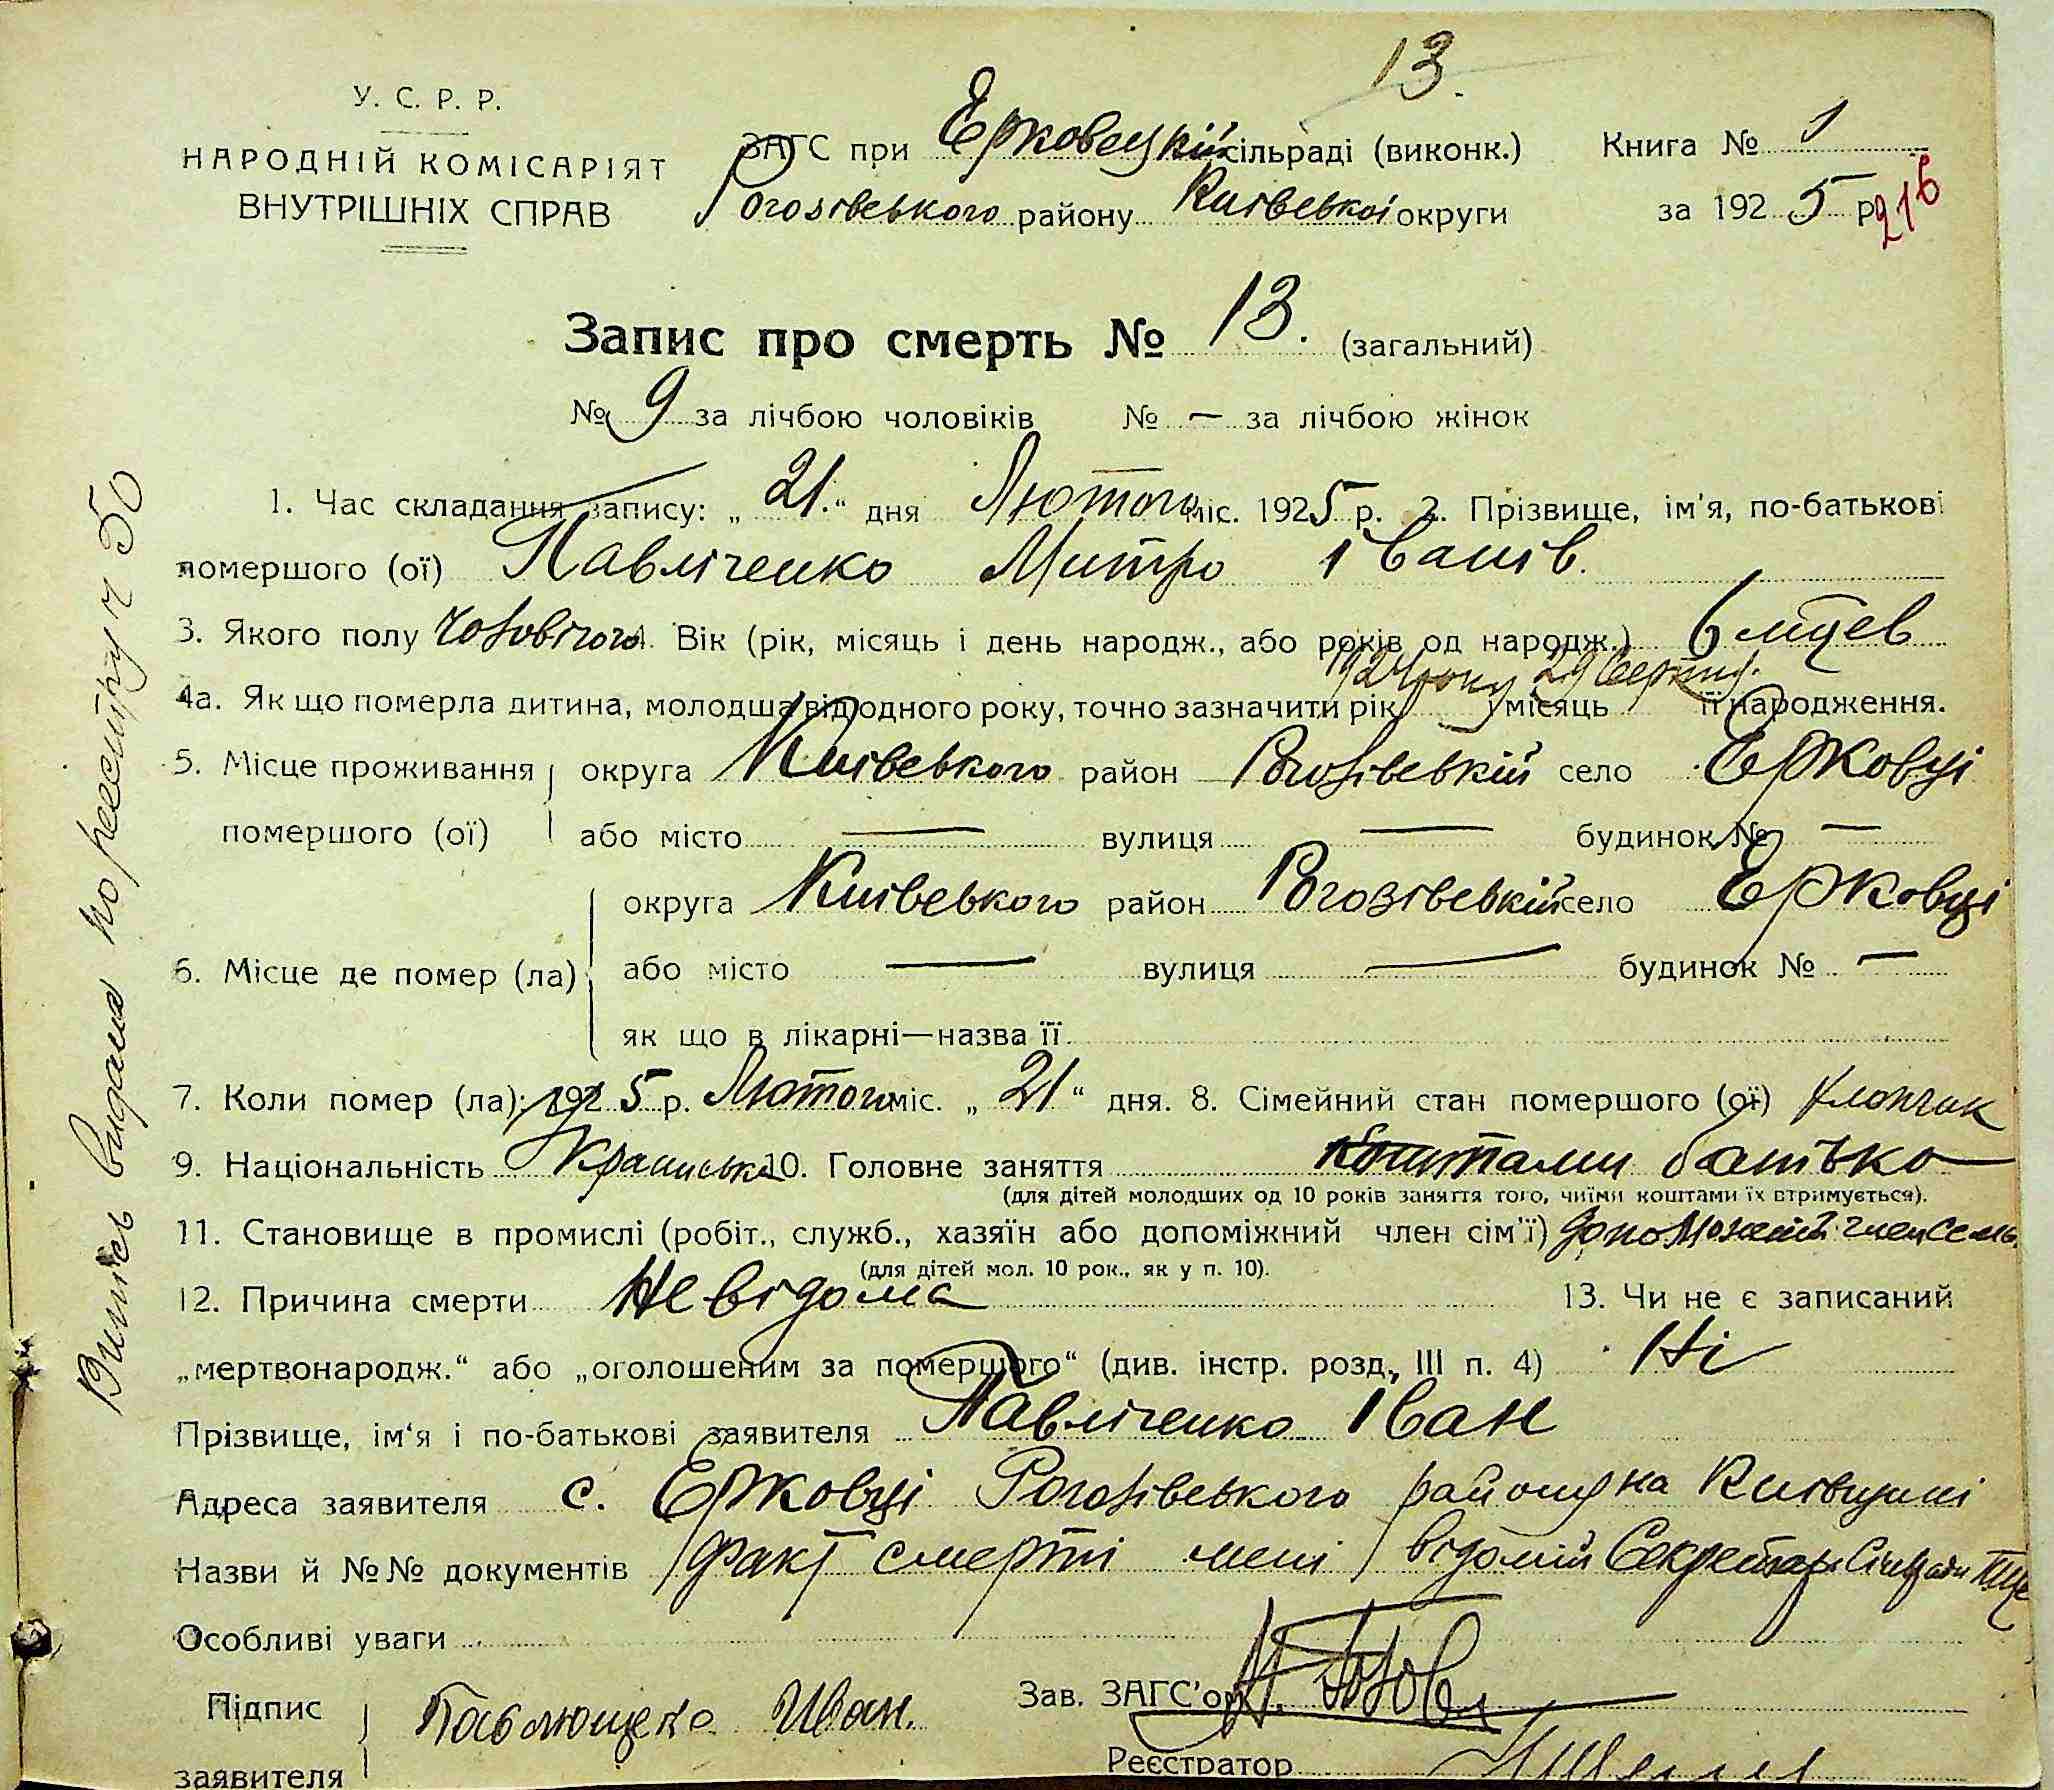 13.
У. С. Р. Р.
НАРОДНІЙ КОМІСАРІЯТ
ВНУТРІШНІХ СПРАВ
ЗАГС при Ерковецкій сільраді (виконк.) Книга № 1
Рогозівського району Київської округи за 1925 р.
216
Запис про смерть № 13. (загальний)
№ 9 за лічбою чоловіків № — за лічбою жінок
1. Час складання запису: „21.“ дня Лютого міс. 1925 р. 2. Прізвище, ім'я, по-батькові
помершого (ої) Павліченко Митро Іванів.
3. Якого полу чоловічого 4. Вік (рік, місяць і день народж., або років од народж.) 6 м-цев
1924 року 29 Серпня.
4а. Як що померла дитина, молодша від одного року, точно зазначити рік місяць її народження.
5. Місце проживання округа Київського район Рогозівській село Ерковці
помершого (ої) або місто — вулиця — будинок № —
округа Київського район Рогозівській село Ерковці
6. Місце де помер (ла) або місто — вулиця — будинок № —
як що в лікарні—назва її
7. Коли помер (ла): 1925 р. Лютого міс. „21“ дня. 8. Сімейний стан помершого (ої) хлопчик
9. Національність Українська 10. Головне заняття коштами батько
(для дітей молодших од 10 років заняття того, чиїми коштами їх втримується).
11. Становище в промислі (робіт., служб., хазяїн або допоміжний член сім'ї) допоможний член семь.
(для дітей мол. 10 рок., як у п. 10).
12. Причина смерти Невідома 13. Чи не є записаний
„мертвонародж.“ або „оголошеним за помершого“ (див. інстр. розд. III п. 4) Ні
Прізвище, ім'я і по-батькові заявителя Павліченко Іван
Адреса заявителя с. Ерковці Рогозівського району на Київщині
Назви й №№ документів Факт смерті мені відомій Секретарь Сільради
Особливі уваги
Підпис заявителя Павлющенко Иван. Зав. ЗАГС'ом
Реєстратор
Витяг видана по реестру ч 50